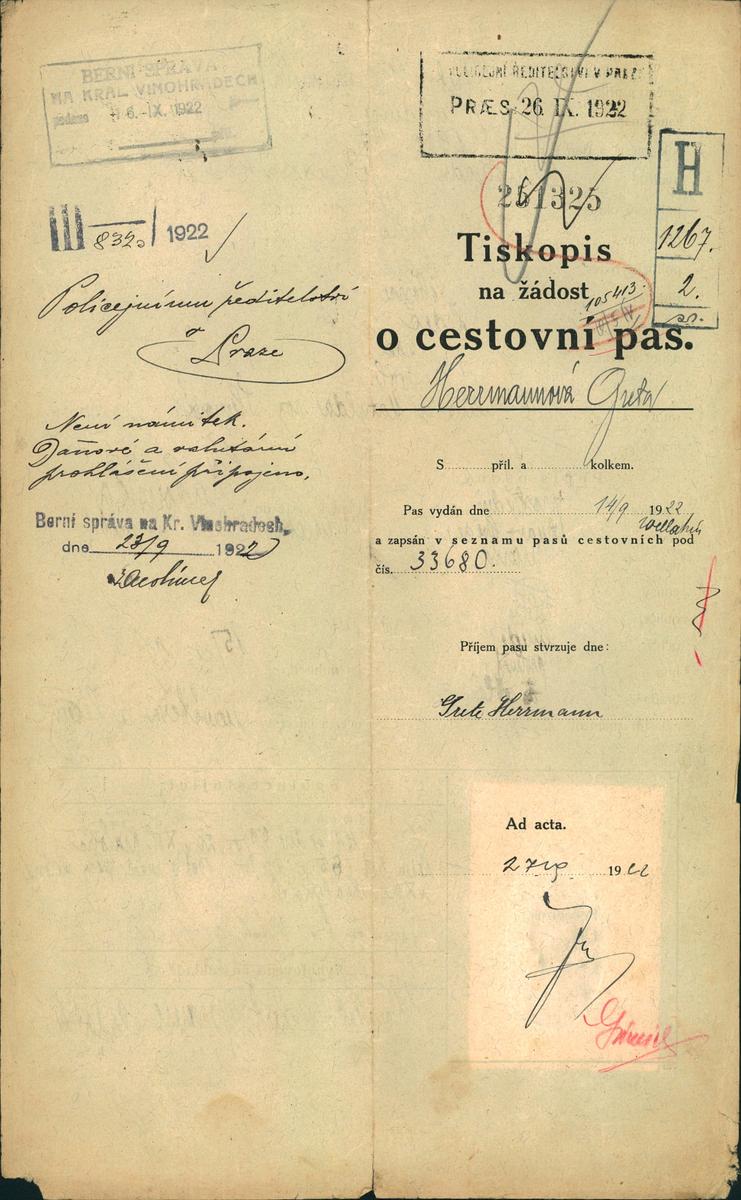 BERNÍ SPRÁVA
NA KRÁL. VINOHRADECH
podáno 6.-IX.1922
III 832 1922
Policejnímu ředitelství
v
Praze
Není námitek.
Daňové a valutární
prohlášení připojeno.
Berní správa na Kr. Vinohradech,
dne 23/9 1922
POLICEJNÍ ŘEDITELSTVÍ V PRAZE
PRÆS. 26. IX. 1922
H
1267.
2.
251325
Tiskopis
na žádost
105413
o cestovní pas.
Herrmannová Greta
S příl. a kolkem.
Pas vydán dne 14/9 1922
a zapsán v seznamu pasů cestovních pod
čís. 33680.
Příjem pasu stvrzuje dne:
Grete Herrmann
Ad acta.
27/9 1922